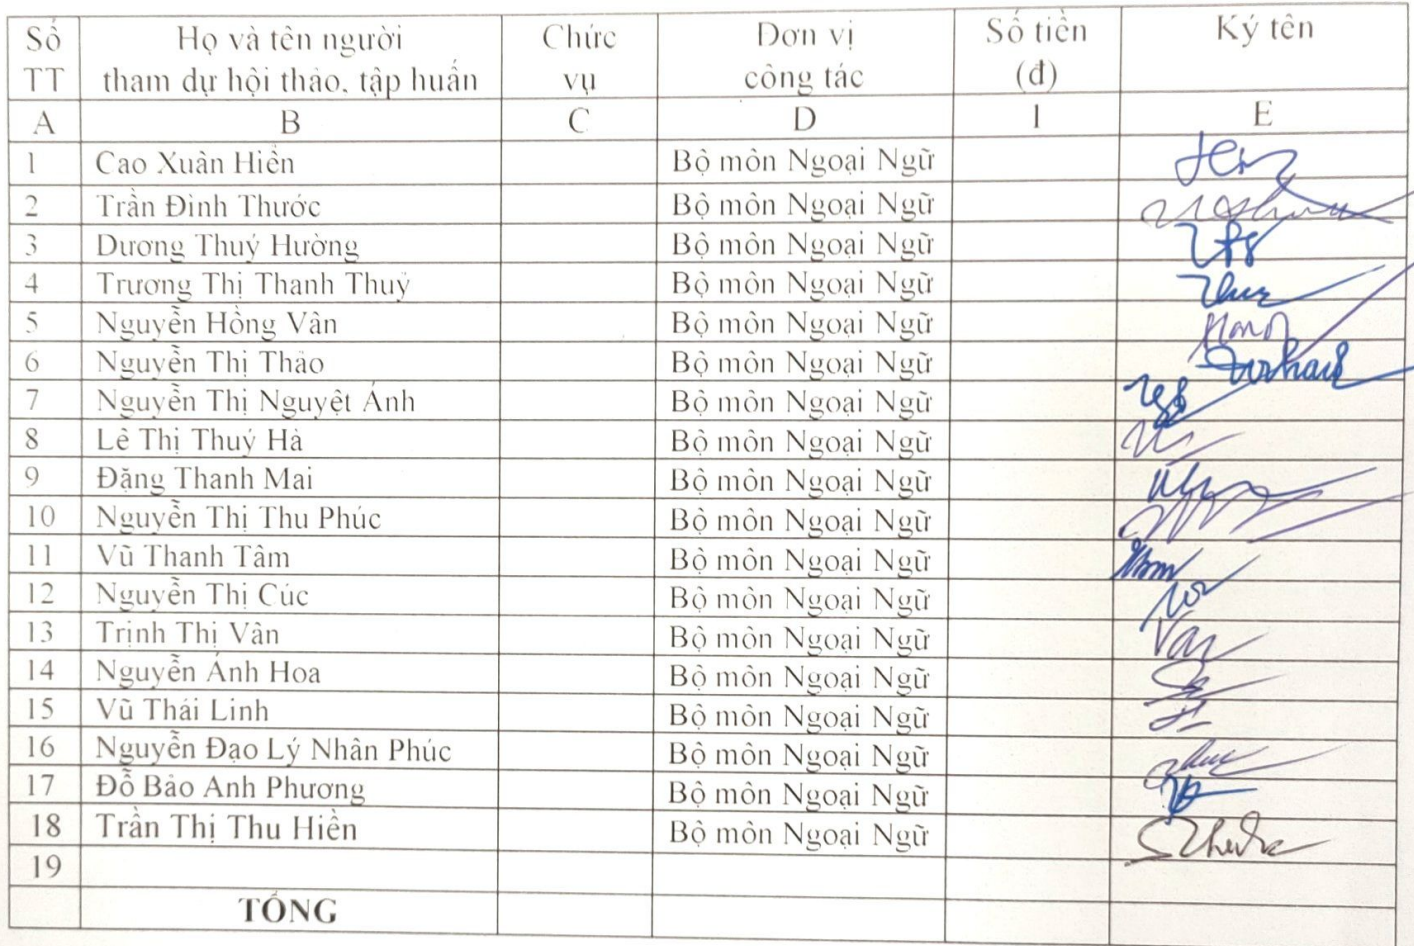 Số TT Họ và tên người tham dự hội thảo, tập huấn Chức vụ Đơn vị công tác Số tiền (đ) Ký tên
A B C D 1 E
1 Cao Xuân Hiền Bộ môn Ngoại Ngữ
2 Trần Đình Thước Bộ môn Ngoại Ngữ
3 Dương Thuý Hường Bộ môn Ngoại Ngữ
4 Trương Thị Thanh Thuỷ Bộ môn Ngoại Ngữ
5 Nguyễn Hồng Vân Bộ môn Ngoại Ngữ
6 Nguyễn Thị Thảo Bộ môn Ngoại Ngữ
7 Nguyễn Thị Nguyệt Ánh Bộ môn Ngoại Ngữ
8 Lê Thị Thuý Hà Bộ môn Ngoại Ngữ
9 Đặng Thanh Mai Bộ môn Ngoại Ngữ
10 Nguyễn Thị Thu Phúc Bộ môn Ngoại Ngữ
11 Vũ Thanh Tâm Bộ môn Ngoại Ngữ
12 Nguyễn Thị Cúc Bộ môn Ngoại Ngữ
13 Trịnh Thị Vân Bộ môn Ngoại Ngữ Van
14 Nguyễn Ánh Hoa Bộ môn Ngoại Ngữ
15 Vũ Thái Linh Bộ môn Ngoại Ngữ
16 Nguyễn Đạo Lý Nhân Phúc Bộ môn Ngoại Ngữ
17 Đỗ Bảo Anh Phương Bộ môn Ngoại Ngữ
18 Trần Thị Thu Hiền Bộ môn Ngoại Ngữ
19
TỔNG